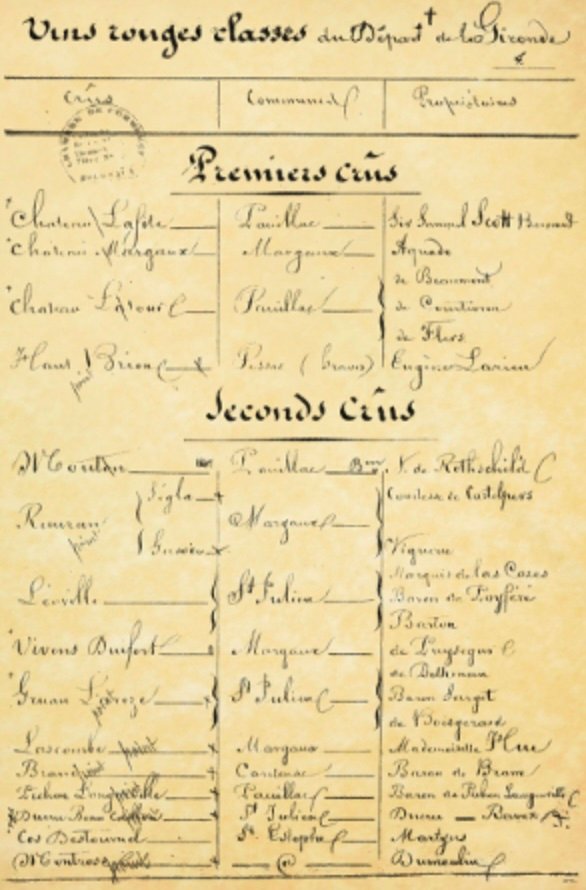 Vins rouges classés du Départ^t de la Gironde
Crûs Communes Propriétaires
CHAMBRE DE COMMERCE
Premiers crûs
Chateau Lafite Pauillac Sir Samuel Scott
Chateau Margaux Margaux Aguado
de Beaumont
Chateau Latour Pauillac de Courtivron
de Flers
Haut Brion Pessac (Graves) Eugène Larieu
Seconds Crûs
Mouton Pauillac B^on N. de Rothschild
Ségla Comtesse de Castelpers
Rauzan Margaux
Gassies Viguerie
Marquis de las Cases
Léoville S^t Julien Baron de Poyféré
Barton
Vivens Durfort Margaux de Puységur
de Bethmann
Gruau Laroze S^t Julien Baron Sarget
de Boisgerard
Lascombe Margaux Mademoiselle Hue
Brane Cantenac Baron de Brane
Pichon Longueville Pauillac Baron de Pichon Longueville
Ducru Beau Caillou S^t Julien Ducru Ravez
Cos Destournel S^t Estèphe Martyns
Montrose Dumoulin